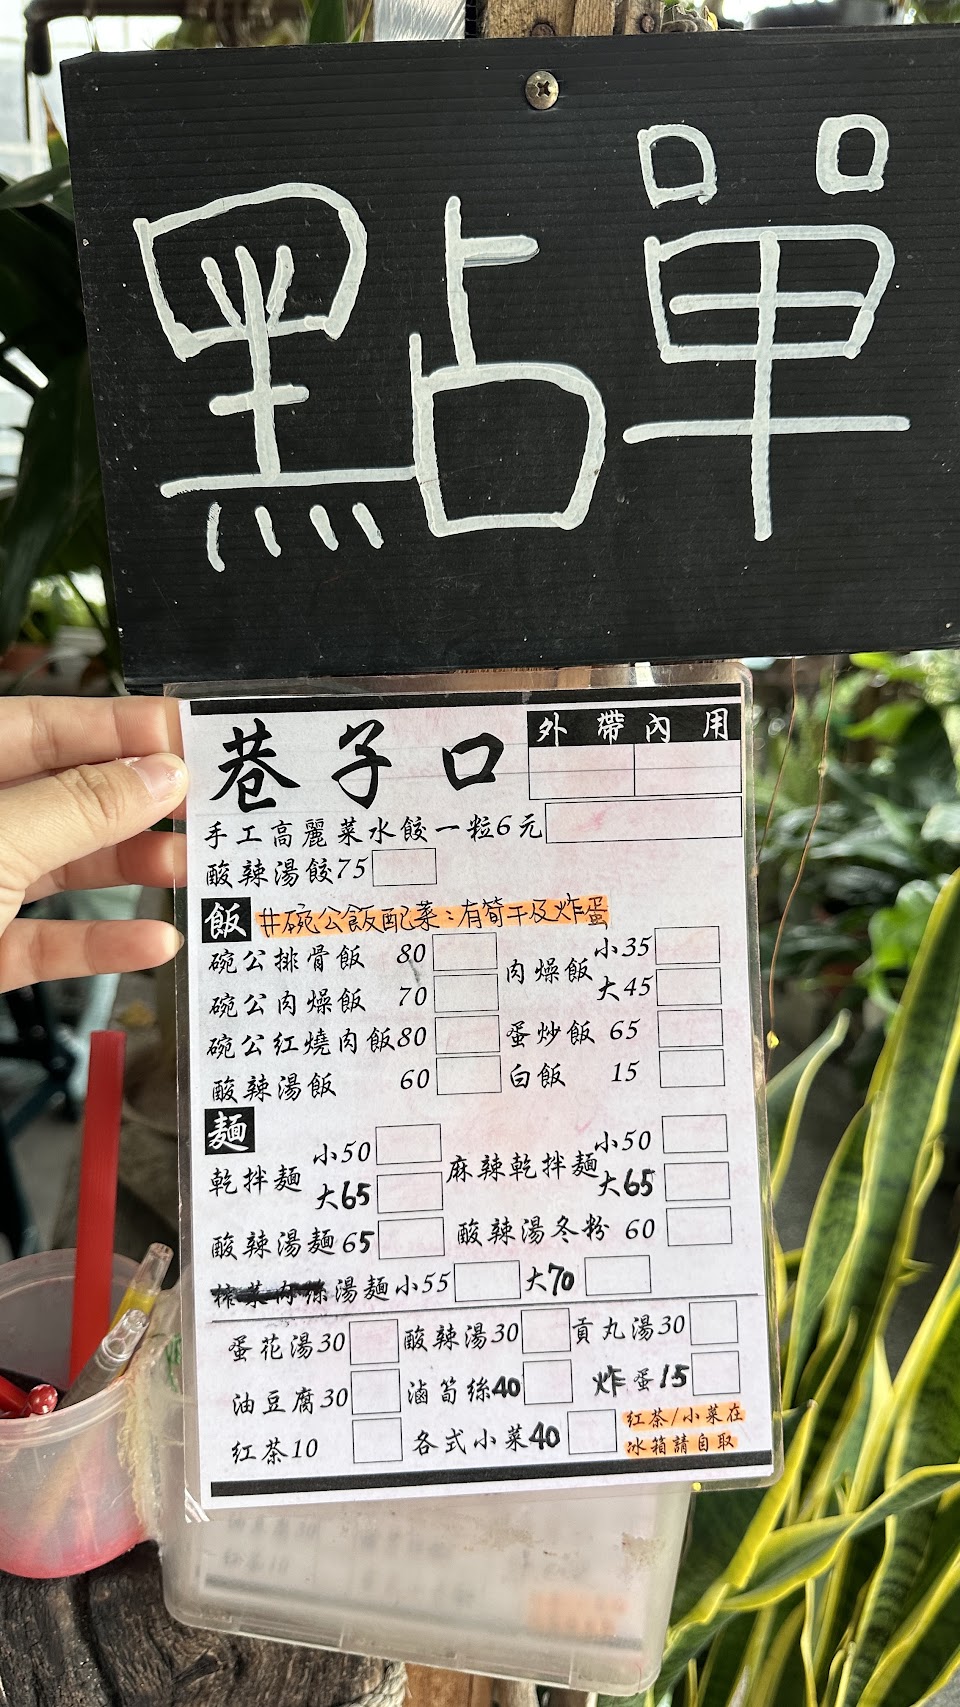 點單
巷子口
外帶 內用
手工高麗菜水餃一粒6元
酸辣湯餃75
飯 #碗公飯配菜:有筍干及炸蛋
碗公排骨飯 80
碗公肉燥飯 70
碗公紅燒肉飯80
酸辣湯飯 60
肉燥飯 小35
大45
蛋炒飯 65
白飯 15
麵
乾拌麵 小50
大65
麻辣乾拌麵 小50
大65
酸辣湯麵65 酸辣湯冬粉 60
榨菜肉絲湯麵小55 大70
蛋花湯30 酸辣湯30 貢丸湯30
油豆腐30 滷筍絲40 炸蛋15
紅茶10 各式小菜40
紅茶/小菜在
冰箱請自取